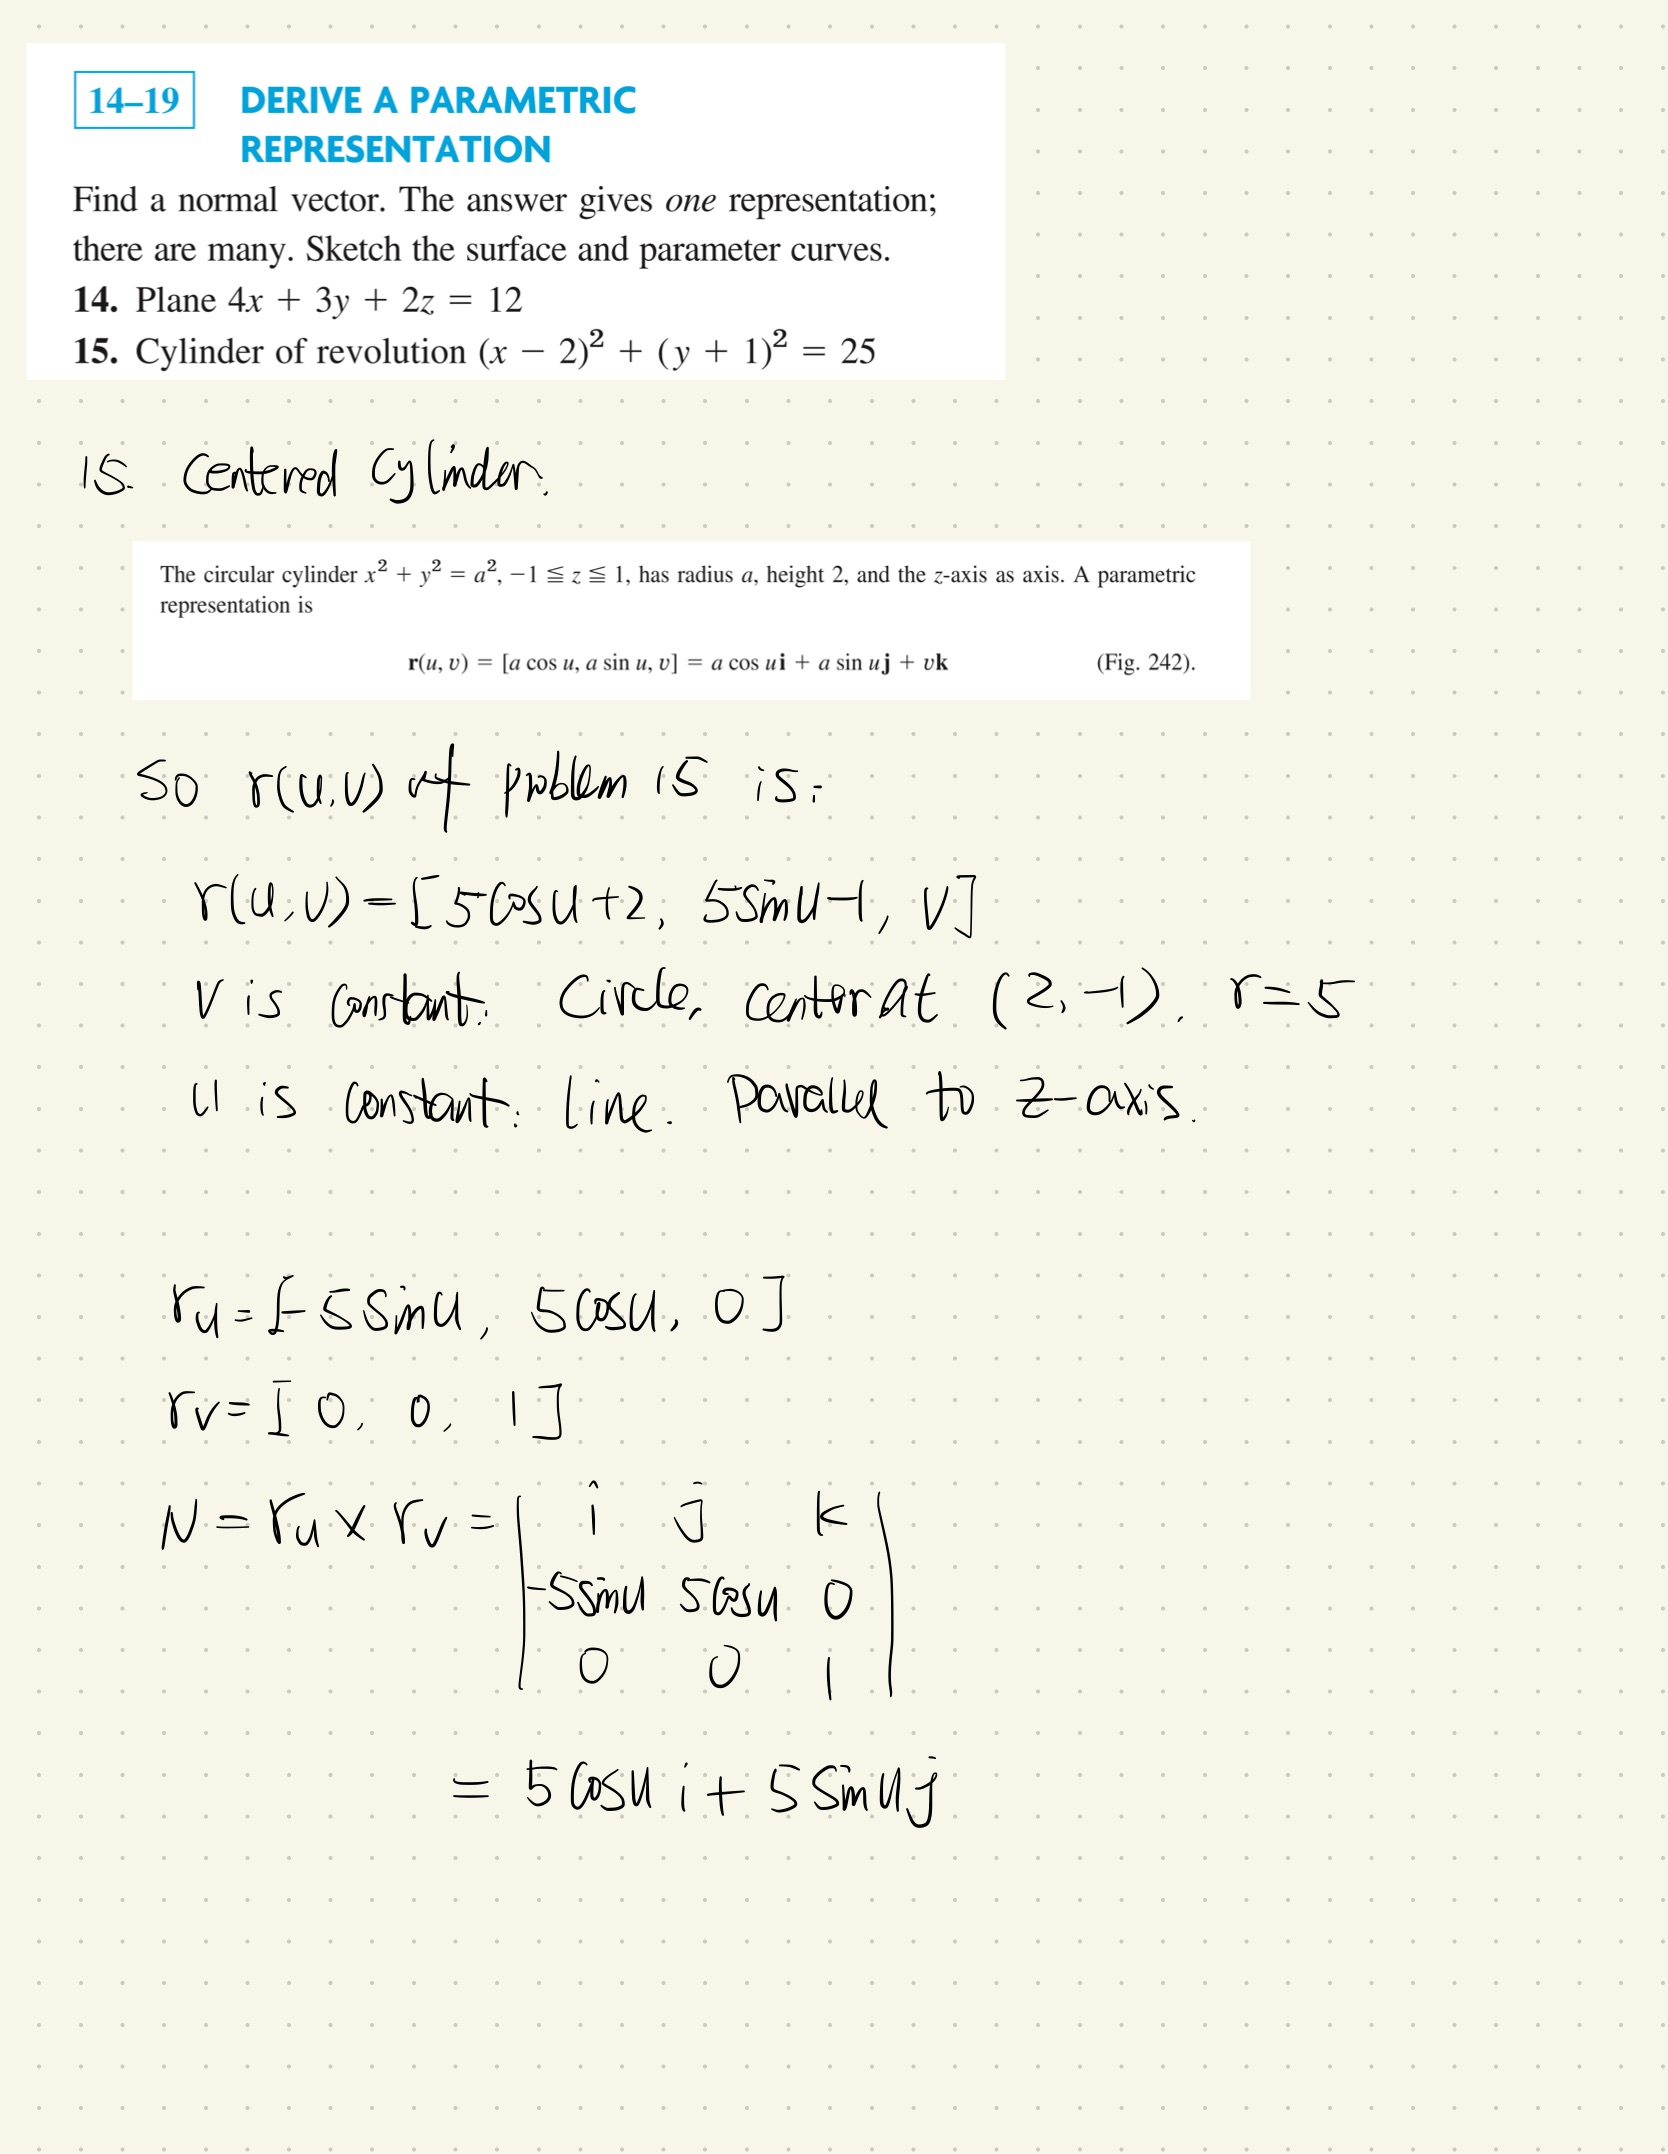 14–19 DERIVE A PARAMETRIC
REPRESENTATION
Find a normal vector. The answer gives one representation;
there are many. Sketch the surface and parameter curves.
14. Plane 4x + 3y + 2z = 12
15. Cylinder of revolution (x − 2)² + (y + 1)² = 25
15. Centered Cylinder.
The circular cylinder x² + y² = a², −1 ≦ z ≦ 1, has radius a, height 2, and the z-axis as axis. A parametric
representation is
r(u, v) = [a cos u, a sin u, v] = a cos ui + a sin uj + vk (Fig. 242).
So r(u,v) of problem 15 is:
r(u,v) = [5cosu+2, 5sinu-1, v]
V is constant: Circle, center at (2,-1). r=5
u is constant: line. Parallel to z-axis.
ru = [-5sinu, 5cosu, 0]
rv = [0, 0, 1]
N = ru × rv = | i j k |
| -5sinu 5cosu 0 |
| 0 0 1 |
= 5cosu i + 5sinu j